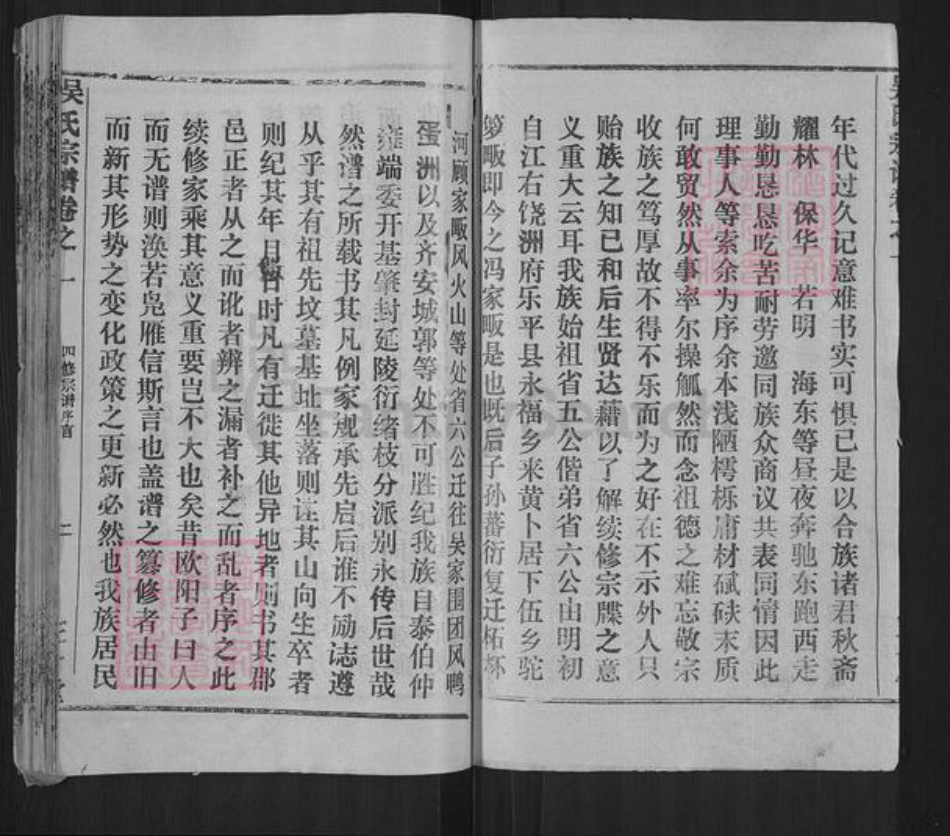 年代过久记意难书实可惧已是以合族诸君秋斋
耀林 保华 若明 海东等昼夜奔驰东跑西走
勤勤恳恳吃苦耐劳邀同族众商议共表同情因此
理事人等索余为序余本浅陋樗栎庸材碔砆末质
何敢贸然从事率尔操觚然而念祖德之难忘敬宗
收族之笃厚故不得不乐而为之好在不示外人只
贻族之知已和后生贤达藉以了解续修宗牒之意
义重大云耳我族始祖省五公偕弟省六公由明初
自江右饶洲府乐平县永福乡来黄卜居下伍乡驼
箩畈即今之冯家畈是也既后子孙蕃衍复迁柘
河顾家畈风火山等处省六公迁往吴家围团风鸭
蛋洲以及齐安城郭等处不可胜纪我族自泰伯仲
雍端委开基肇封延陵衍绪枝分派别永传后世哉
然谱之所载书其凡例家规承先启后谁不励志遵
从乎其有祖先坟墓基址坐落则注其山向生卒者
则纪其年月日时凡有迁徙其他异地者则书其郡
邑正者从之而讹者辨之漏者补之而乱者序之此
续修家乘其意义重要岂不大也矣昔欧阳子曰人
而无谱则涣若凫雁信斯言也盖谱之纂修者由旧
而新其形势之变化政策之更新必然也我族居民
吴氏宗谱卷之一 四修宗谱序言 二